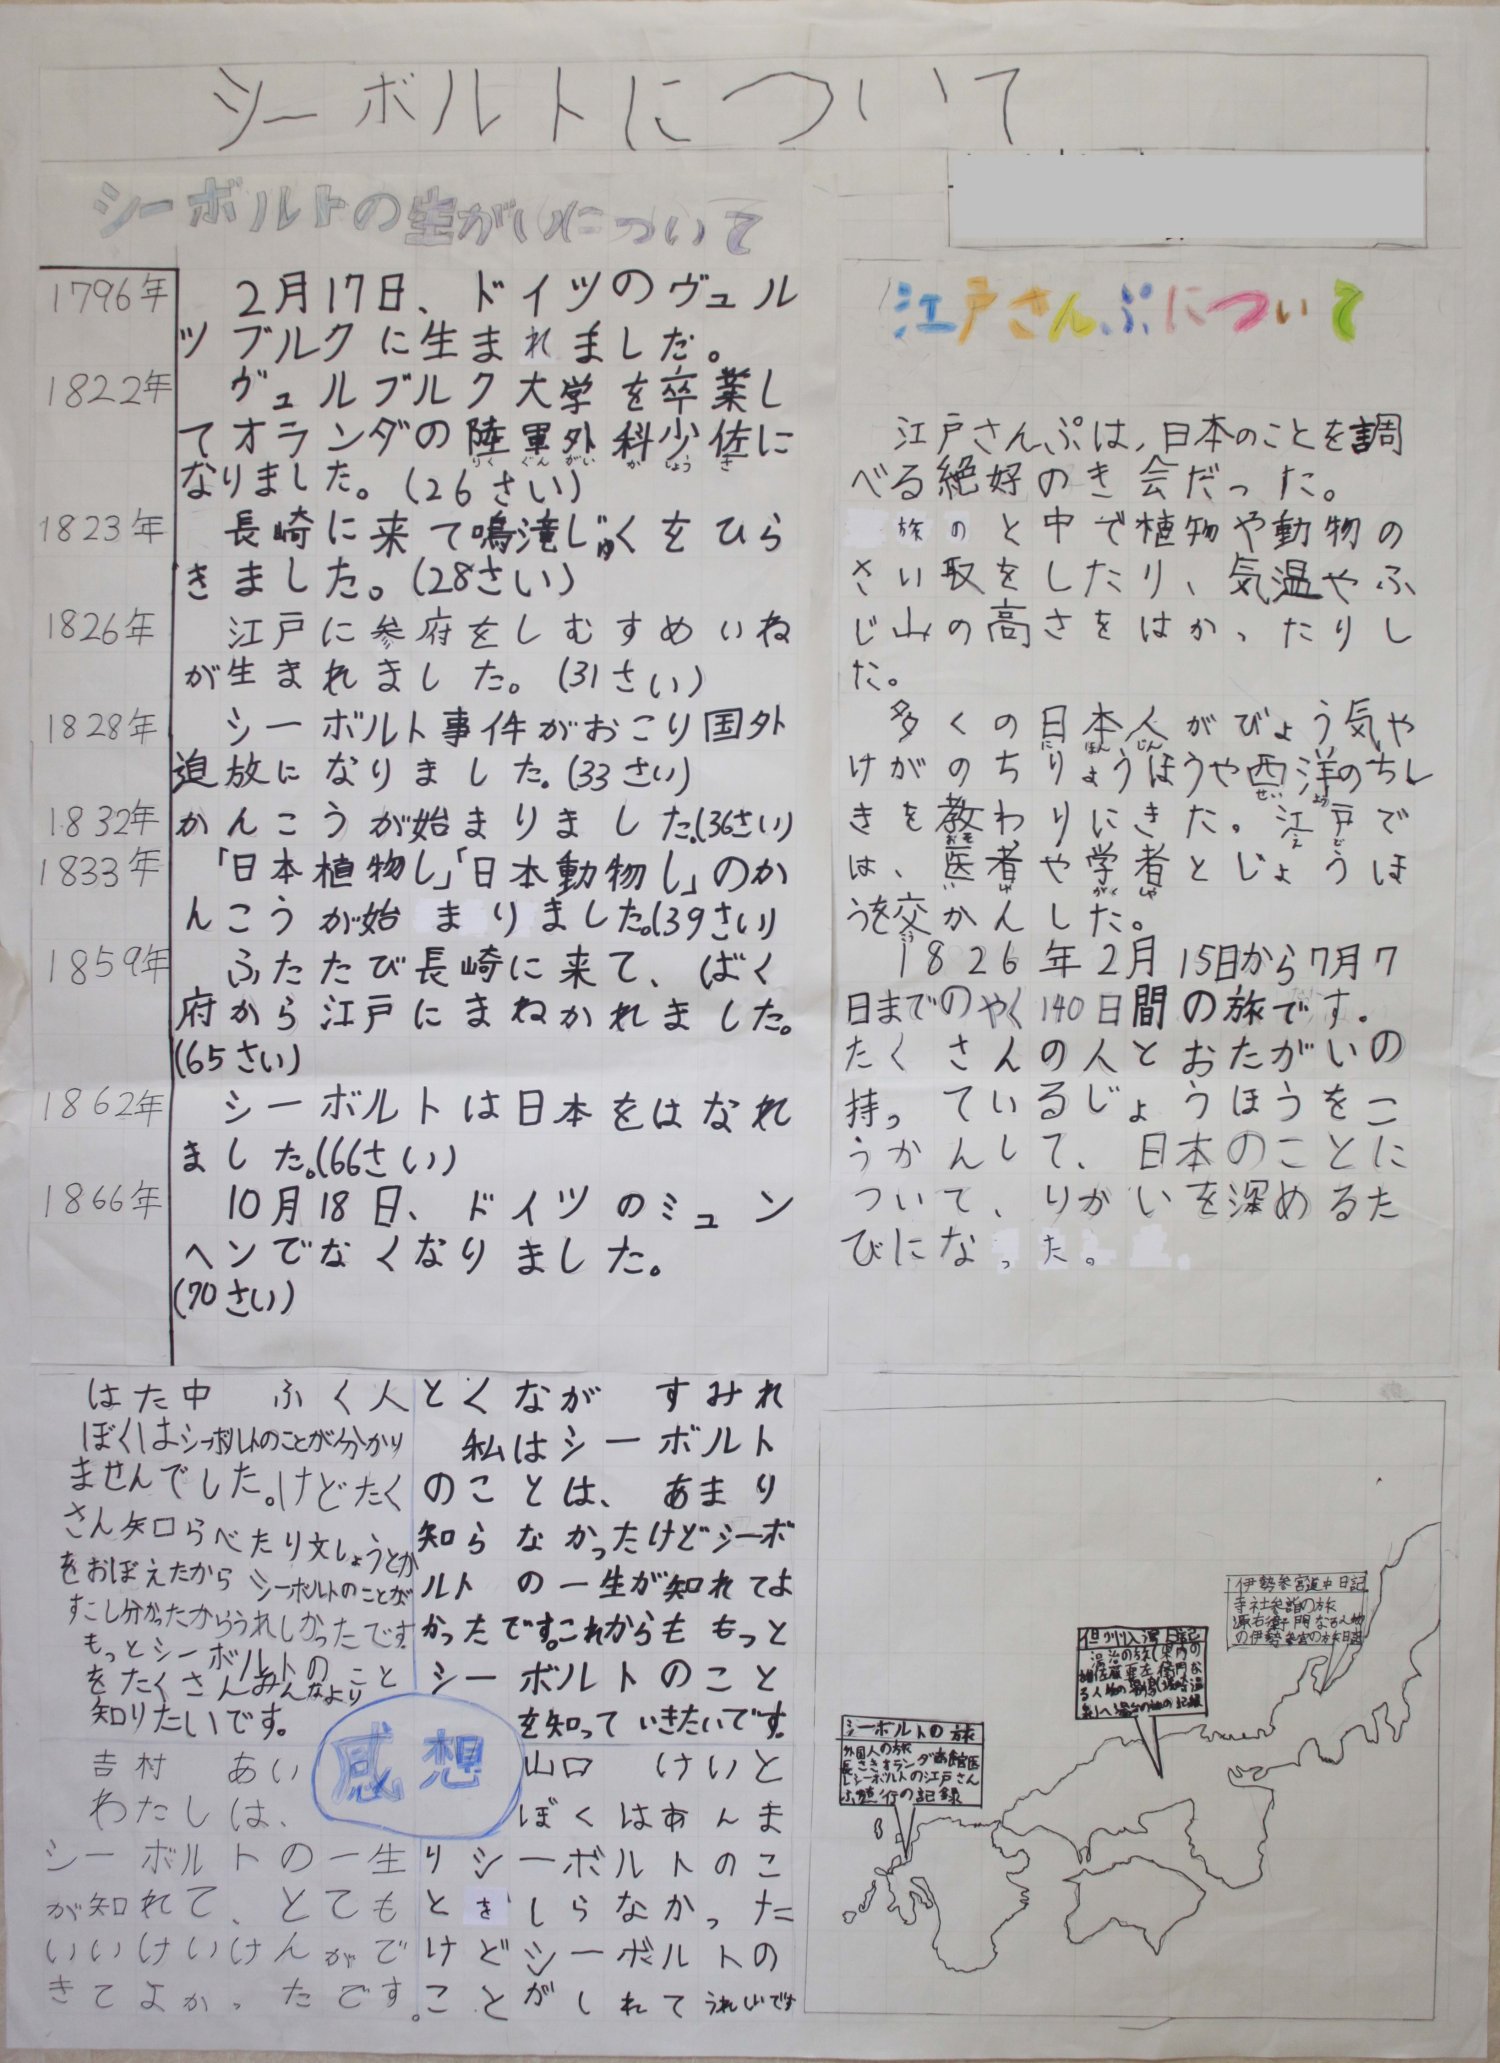 シーボルトについて
シーボルトの生がいについて
1796年 2月17日、ドイツのヴュル
ツブルクに生まれました。
1822年 ヴュルブルク大学を卒業し
てオランダの陸軍外科少佐に
りく ぐん がい か しょう さ
なりました。(26さい)
1823年 長崎に来て鳴滝じゅくをひら
きました。(28さい)
1826年 江戸に参府をしむすめいね
が生まれました。(31さい)
1828年 シーボルト事件がおこり国外
追放になりました。(33さい)
1832年 かんこうが始まりました。(36さい)
1833年 「日本植物し」「日本動物し」のか
んこうが始まりました。(39さい)
1859年 ふたたび長崎に来て、ばく
府から江戸にまねかれました。
(65さい)
1862年 シーボルトは日本をはなれ
ました。(66さい)
1866年 10月18日、ドイツのミュン
ヘンでなくなりました。
(70さい)
江戸さんぷについて
江戸さんぷは、日本のことを調
べる絶好のき会だった。
旅のと中で植物や動物の
さい取をしたり、気温やふ
じ山の高さをはかったりし
た。
多くの日本人がびょう気や
にっ ほん じん
けがのちりょうほうや西洋のちし
せい よう
きを教わりにきた。江戸で
おそ え ど
は、医者や学者とじょうほ
い しゃ がく しゃ
うを交かんした。
こう
1826年2月15日から7月7
日までのやく140日間の旅です。
たくさんの人とおたがいの
持っているじょうほうをこ
うかんして、日本のことに
ついて、りかいを深めるた
びになった。
はた中 ふく人
ぼくはシーボルトのことが分かり
ませんでした。けどたく
さん知らべたり文しょうとか
をおぼえたからシーボルトのことが
すこし分かったからうれしかったです
もっとシーボルトの
をたくさんみんなよりこと
知りたいです。
とくなが すみれ
私はシーボルト
のことは、あまり
知らなかったけどシーボ
ルトの一生が知れてよ
かったです。これからももっと
シーボルトのこと
を知っていきたいです。
感想
吉村 あい
わたしは、
シーボルトの一生
が知れて、とても
いいけいけんがで
きてよかったです。
山口 けいと
ぼくはあんま
りシーボルトのこ
とをしらなかった
けどシーボルトの
ことがしれてうれしいです
伊勢参宮道中日記
寺社参詣の旅
源右衛門なる人物
の伊勢参宮の旅日記
但州入湯日記
シーボルトの旅
外国人の旅
長さきオランダ商館医
シーボルトの江戸さん
ぷ随行の記録